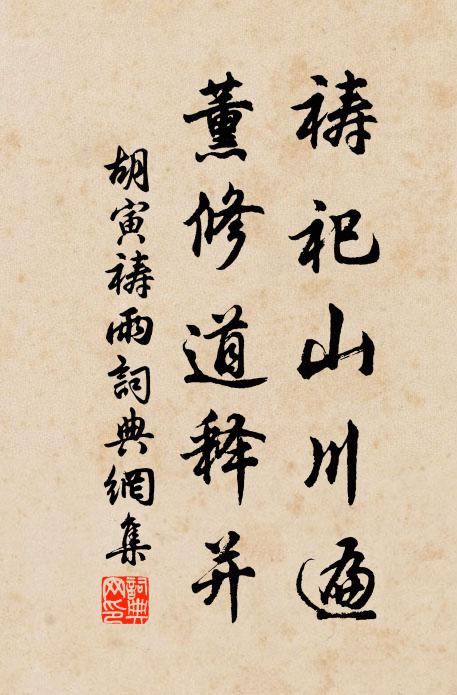 祷祀山川遍
薰修道释并
胡寅祷雨詞典網集
詞典网印